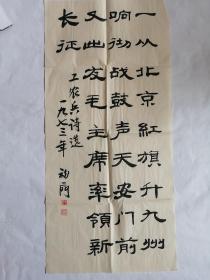 一从北京紅旗升九州
响彻战鼓声天安门前
又此发毛主席率領新
长征
工农兵诗选
一九七三年